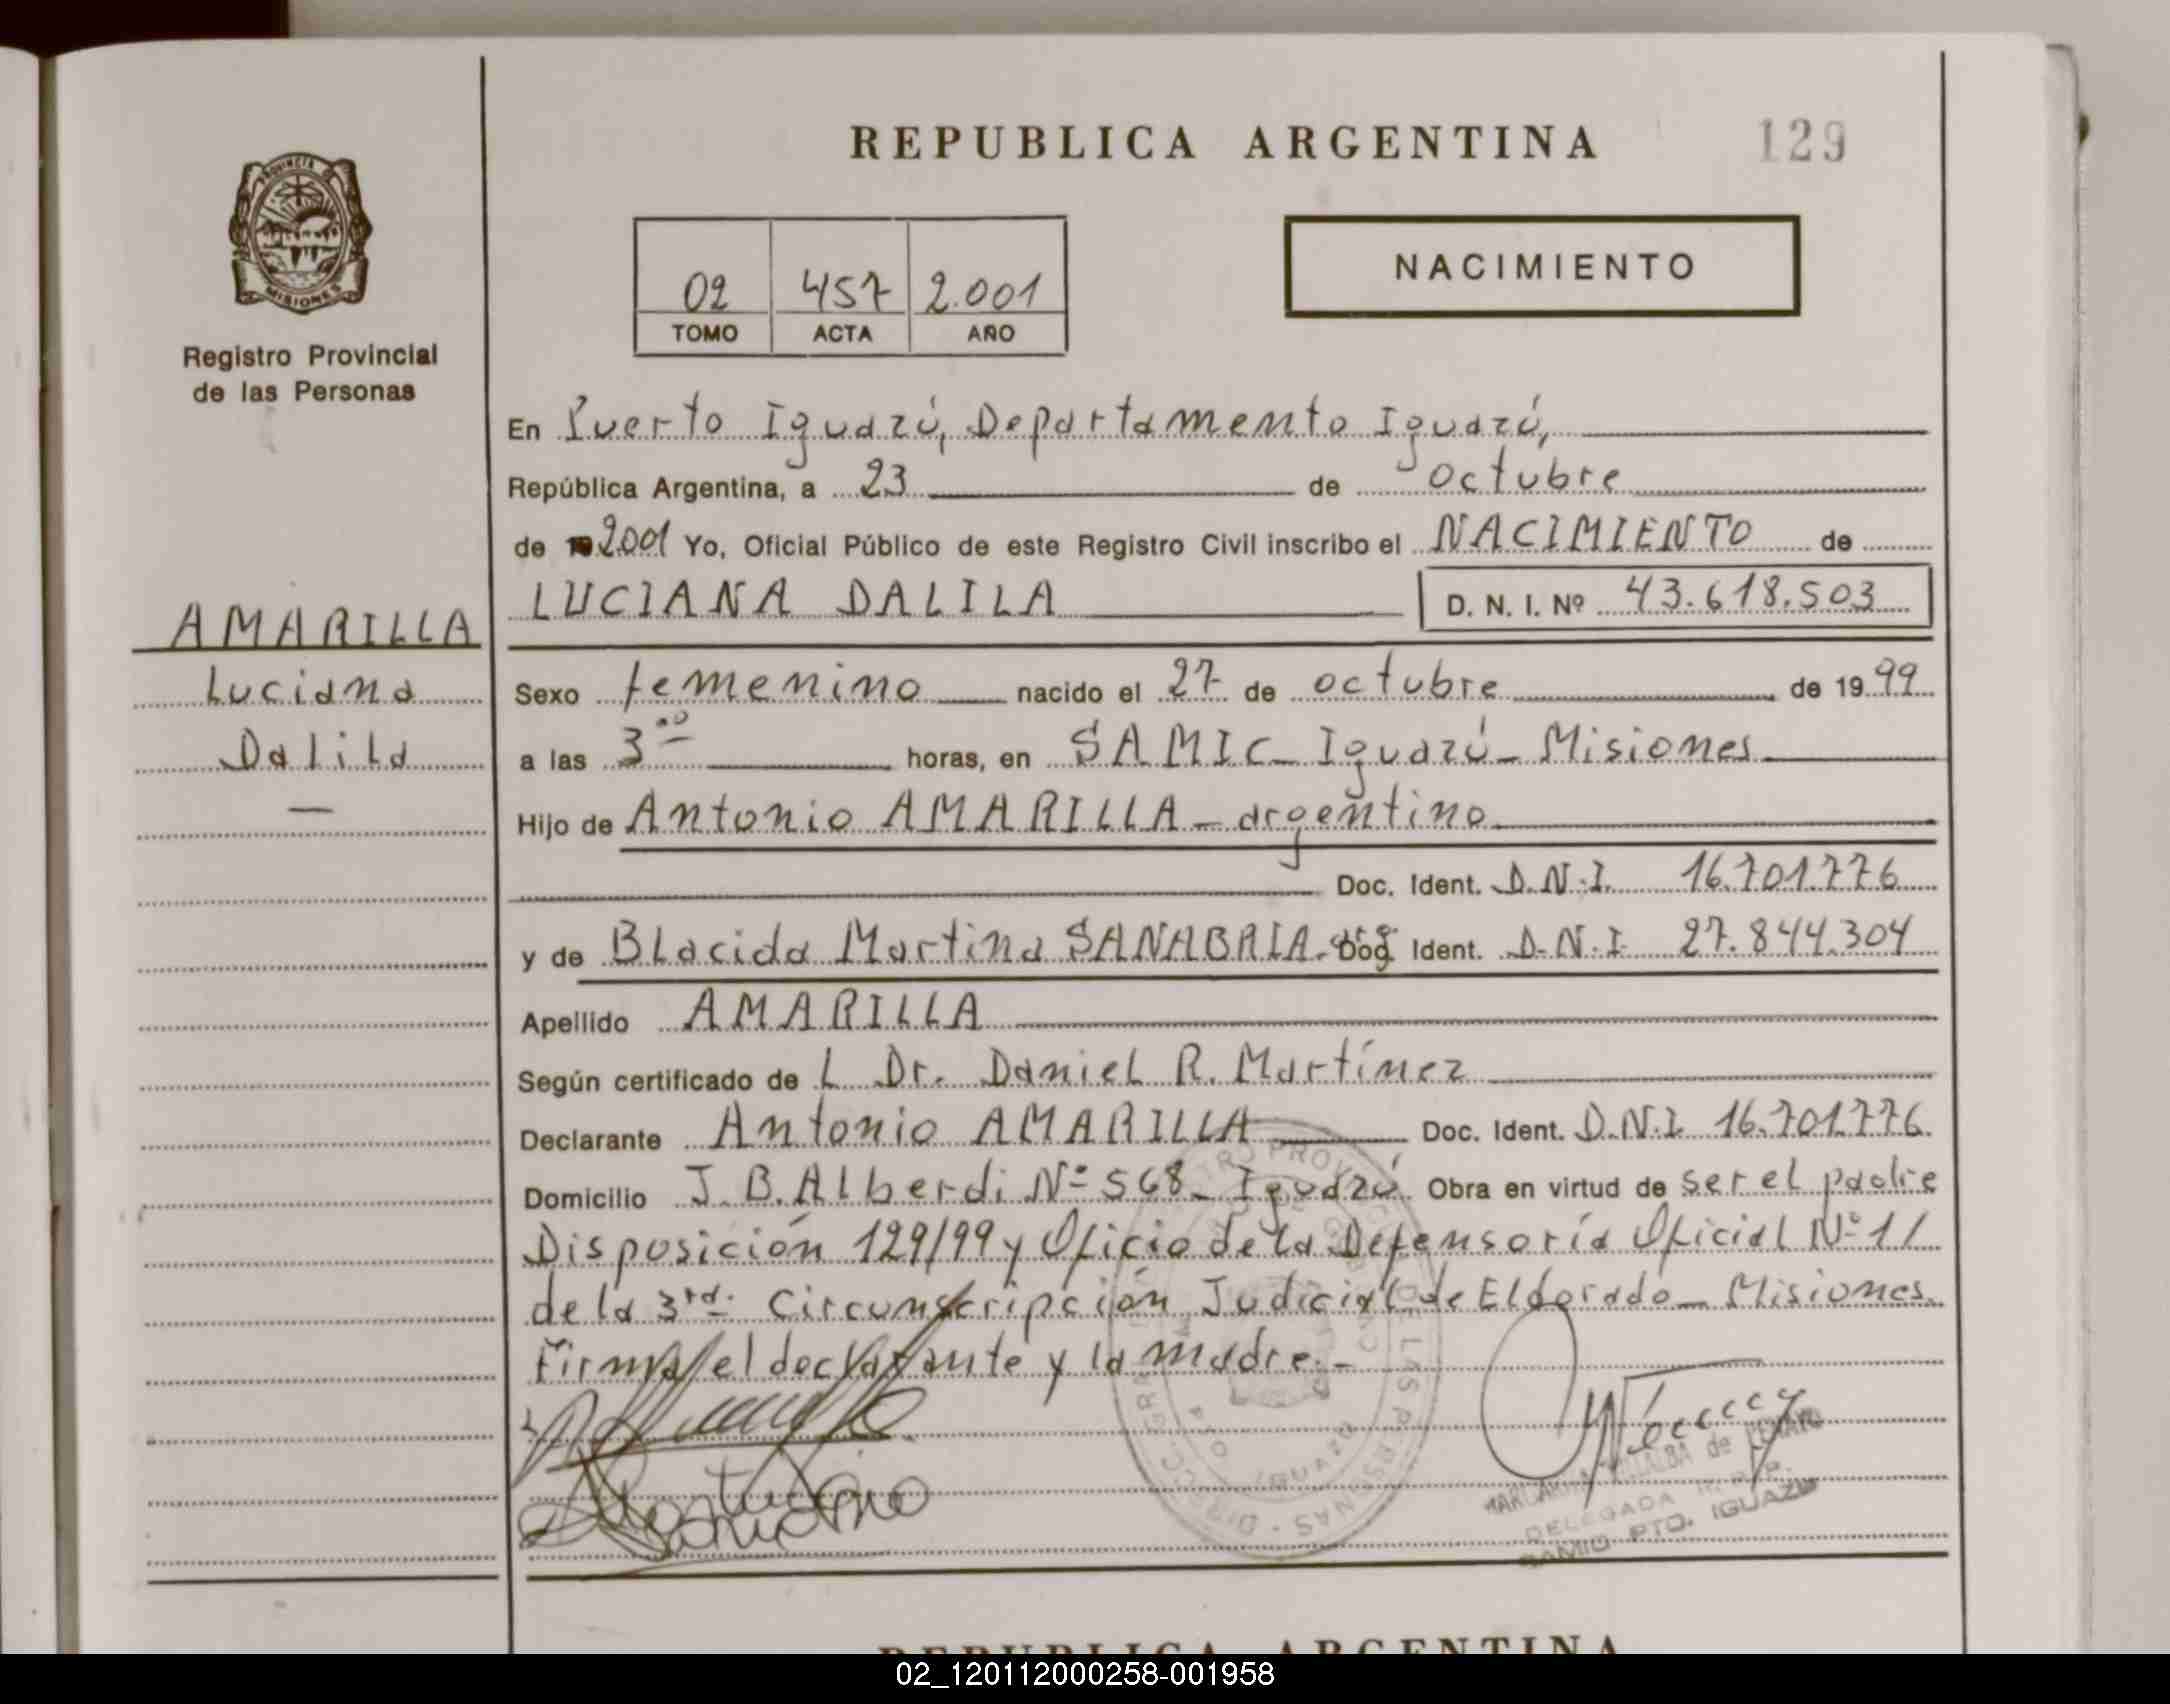 REPUBLICA ARGENTINA
129
PROVINCIA DE
MISIONES
Registro Provincial
de las Personas
02 457 2.001
TOMO ACTA AÑO
NACIMIENTO
En Puerto Iguazú, Departamento Iguazú,
República Argentina, a 23 de octubre
de 2001 Yo, Oficial Público de este Registro Civil inscribo el NACIMIENTO de
LUCIANA DALILA D. N. I. Nº 43.618.503
AMARILLA
Luciana
Dalila
Sexo femenino nacido el 27 de octubre de 1999
a las 3 horas, en SAMIC - Iguazú - Misiones
Hijo de Antonio AMARILLA - argentino
Doc. Ident. D.N.I. 16.701.776
y de Blacida Martina SANABRIA - arg. Doc. Ident. D.N.I 27.844.304
Apellido AMARILLA
Según certificado de L Dr. Daniel R. Martínez
Declarante Antonio AMARILLA Doc. Ident. D.N.I 16.701.776
Domicilio J. B. Alberdi Nº 568 - Iguazú. Obra en virtud de ser el padre
Disposición 129/99 y Oficio de la Defensoría Oficial Nº 1/
de la 3ra. Circunscripción Judicial de Eldorado - Misiones.
Firma el declarante y la madre. -
VILLALBA de
DELEGADA R.P.P.
SAMIC PTO. IGUAZU
REPUBLICA ARGENTINA
02_120112000258-001958